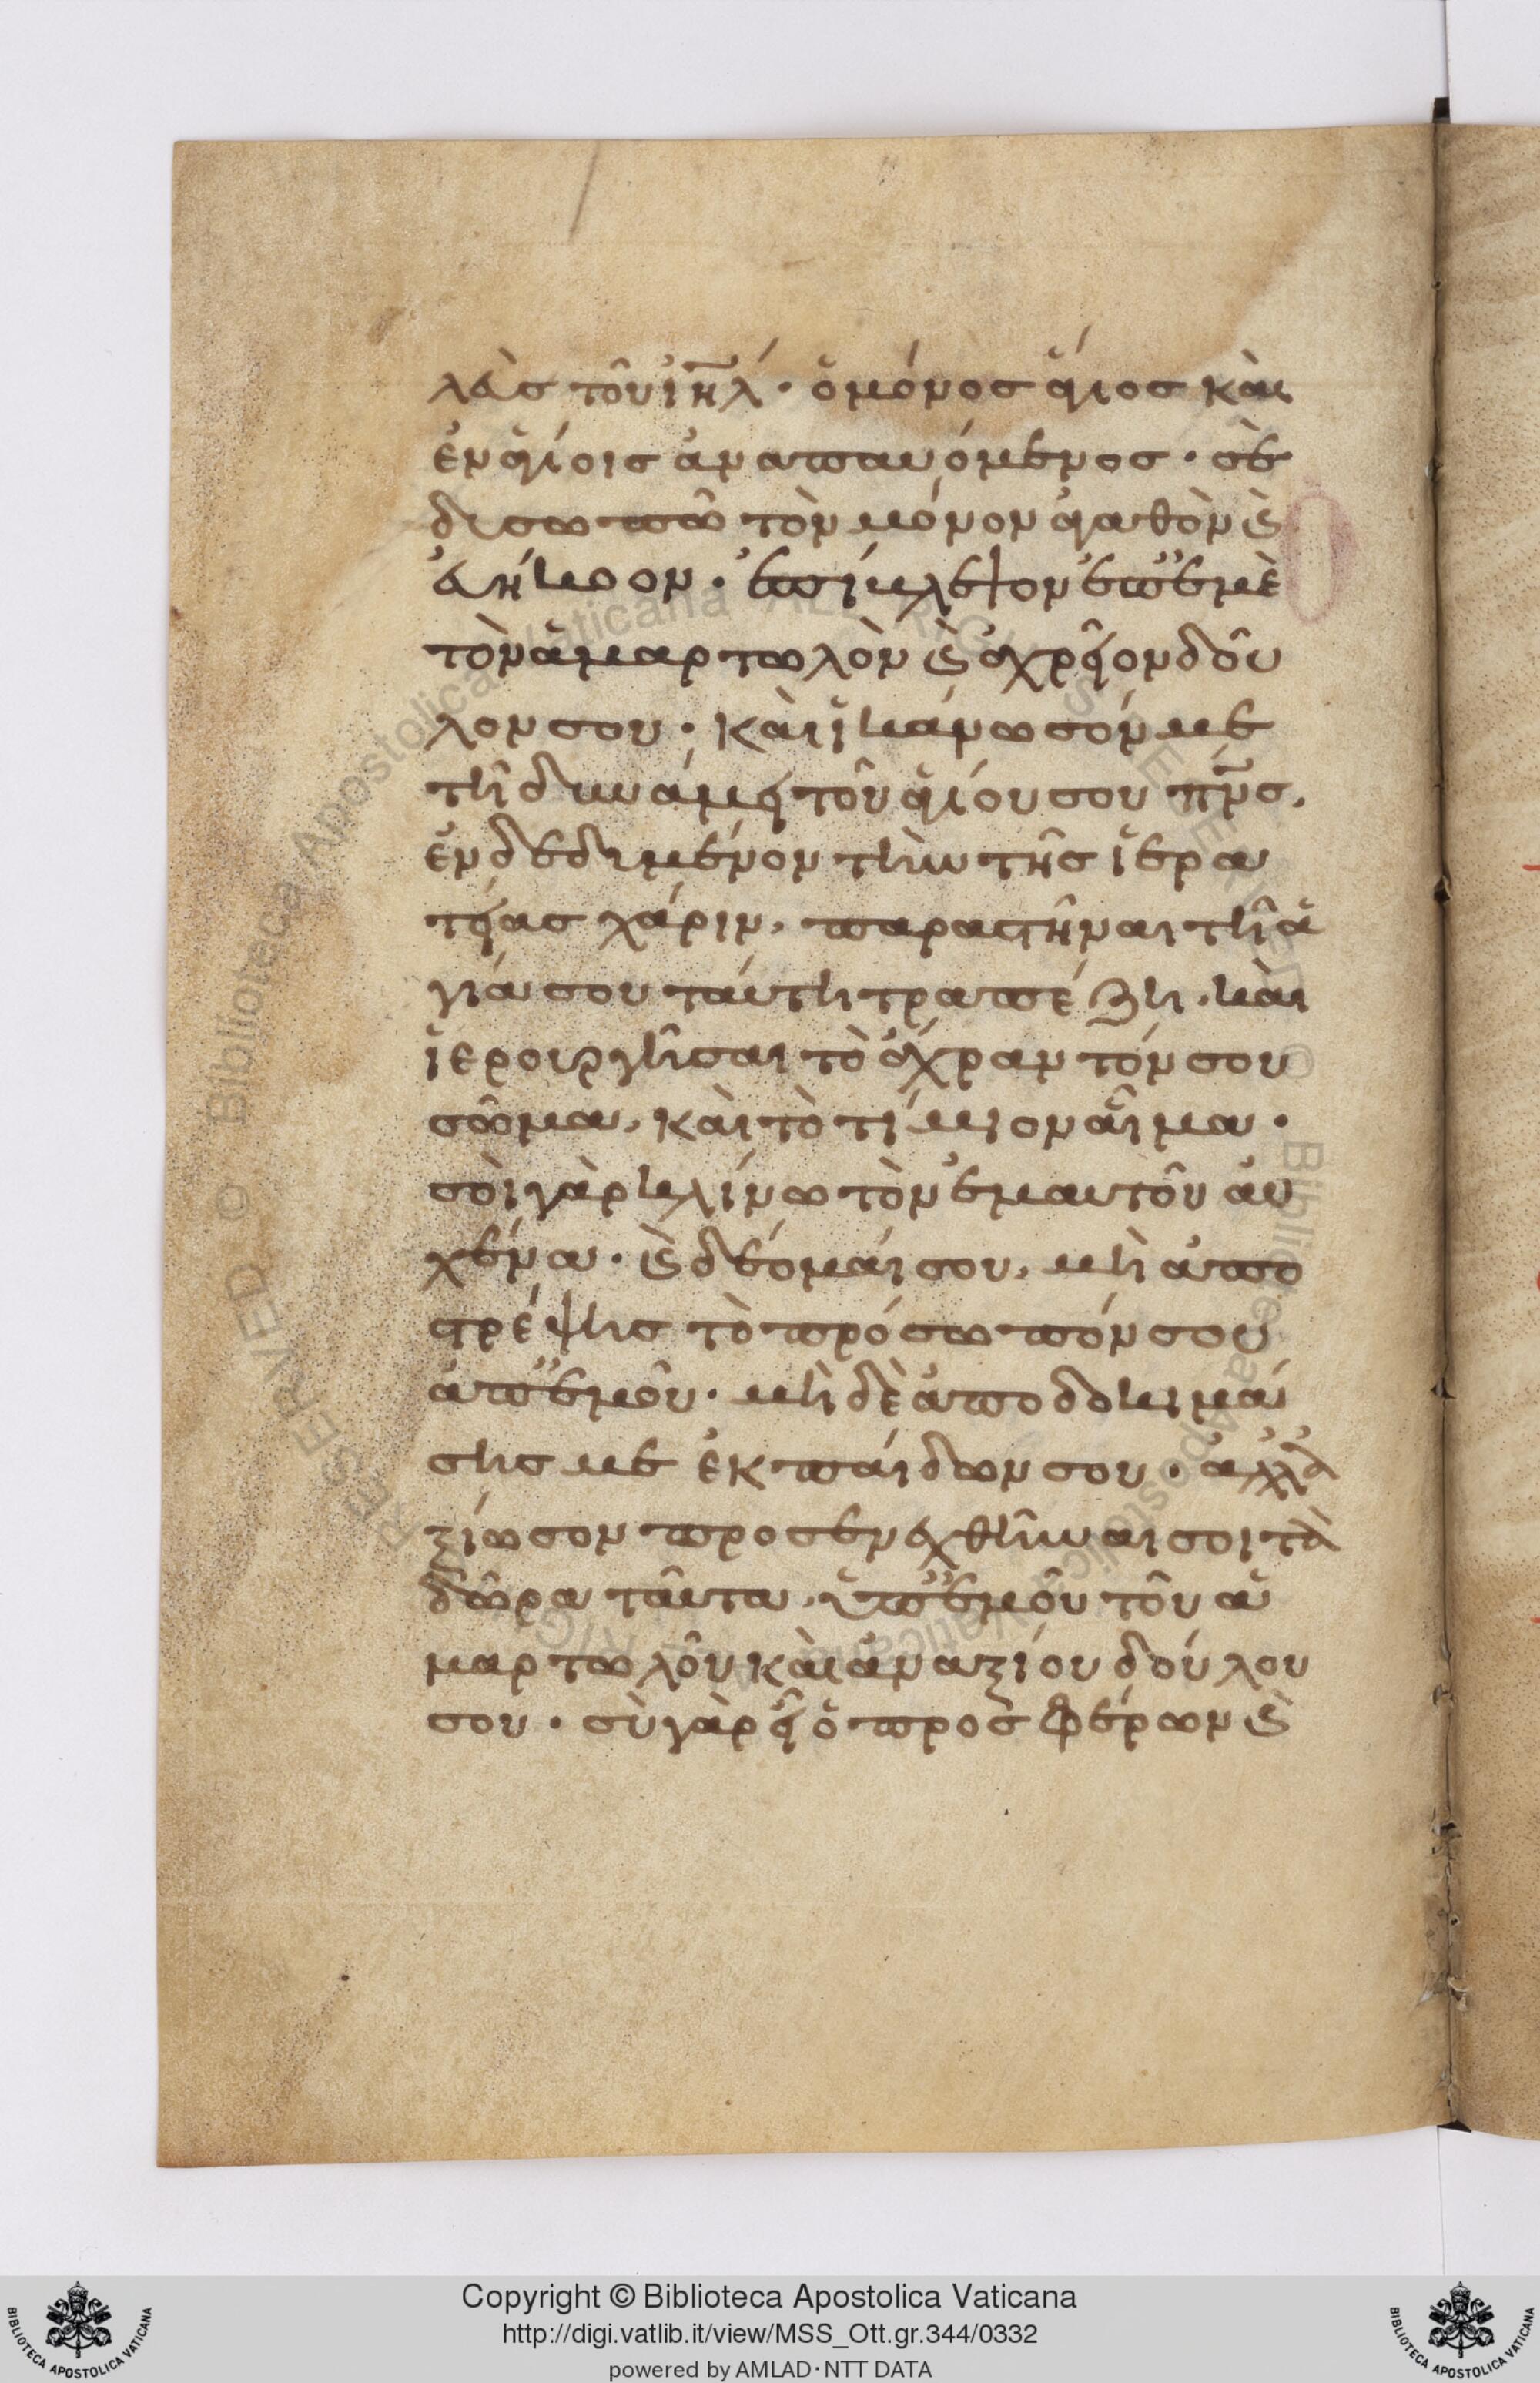 λεὺς τοῦ ἰη̅λ· ὁ μόνος ἅγιος καὶ
ἐν ἁγίοις ἀναπαυόμενος· σὲ
δυσωπῶ τὸν μόνον ἀγαθὸν καὶ
εὐήκοον· ἐπίβλεψον ἐπ' ἐμὲ
τὸν ἁμαρτωλὸν καὶ ἀχρεῖον δοῦ
λον σου· καὶ ἱκάνωσόν με
τῆ δυνάμει τοῦ ἁγίου σου πν̅ς,
ἐνδεδυμένον τὴν τῆς ἱερα
τείας χάριν, παραστῆναι τῆ ἁ
γία σου ταύτη τραπέζη, καὶ
ἱερουργῆσαι τὸ ἄχραντόν σου
σῶμα, καὶ τὸ τίμιον αἷμα·
σοὶ γὰρ κλίνω τὸν ἐμαυτοῦ αὐ
χένα· καὶ δέομαί σου, μὴ ἀπο
στρέψης τὸ πρόσωπόν σου
ἀπ' ἐμοῦ· μὴ δὲ ἀποδοκιμά
σης με ἐκ παίδων σου· ἀλλ' ἀ
ξίωσον προσενεχθῆναι σοι τὰ
δῶρα ταῦτα, ὑπ' ἐμοῦ τοῦ ἁ
μαρτωλοῦ καὶ ἀναξίου δούλου
σου· σὺ γὰρ εἶ ὁ προσφέρων καὶ
Copyright © Biblioteca Apostolica Vaticana
http://digi.vatlib.it/view/MSS_Ott.gr.344/0332
powered by AMLAD·NTT DATA